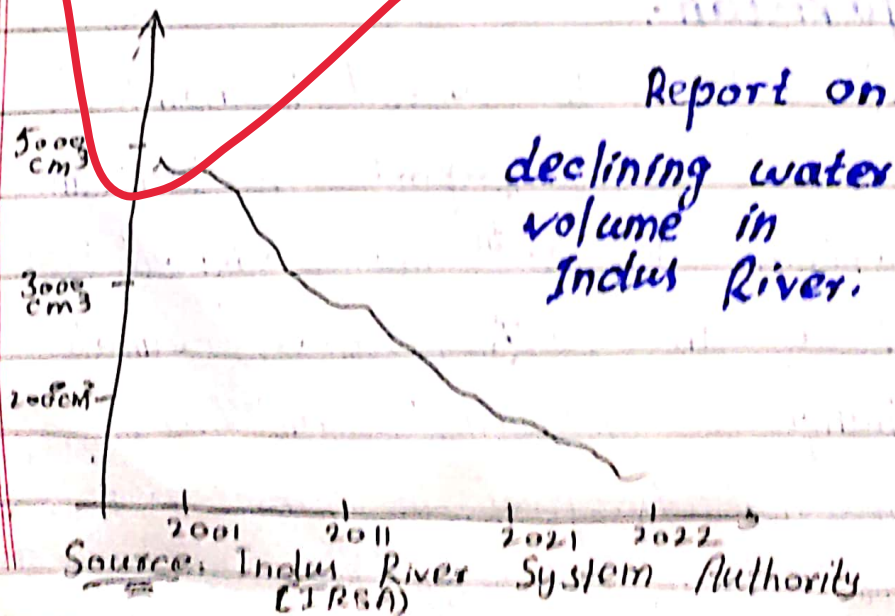 Report on
declining water
volume in
Indus River.
5000
cm3
3000
cm3
200 cm3
2001 2011 2021 2022
Source: Indus River System Authority
(IRSA)